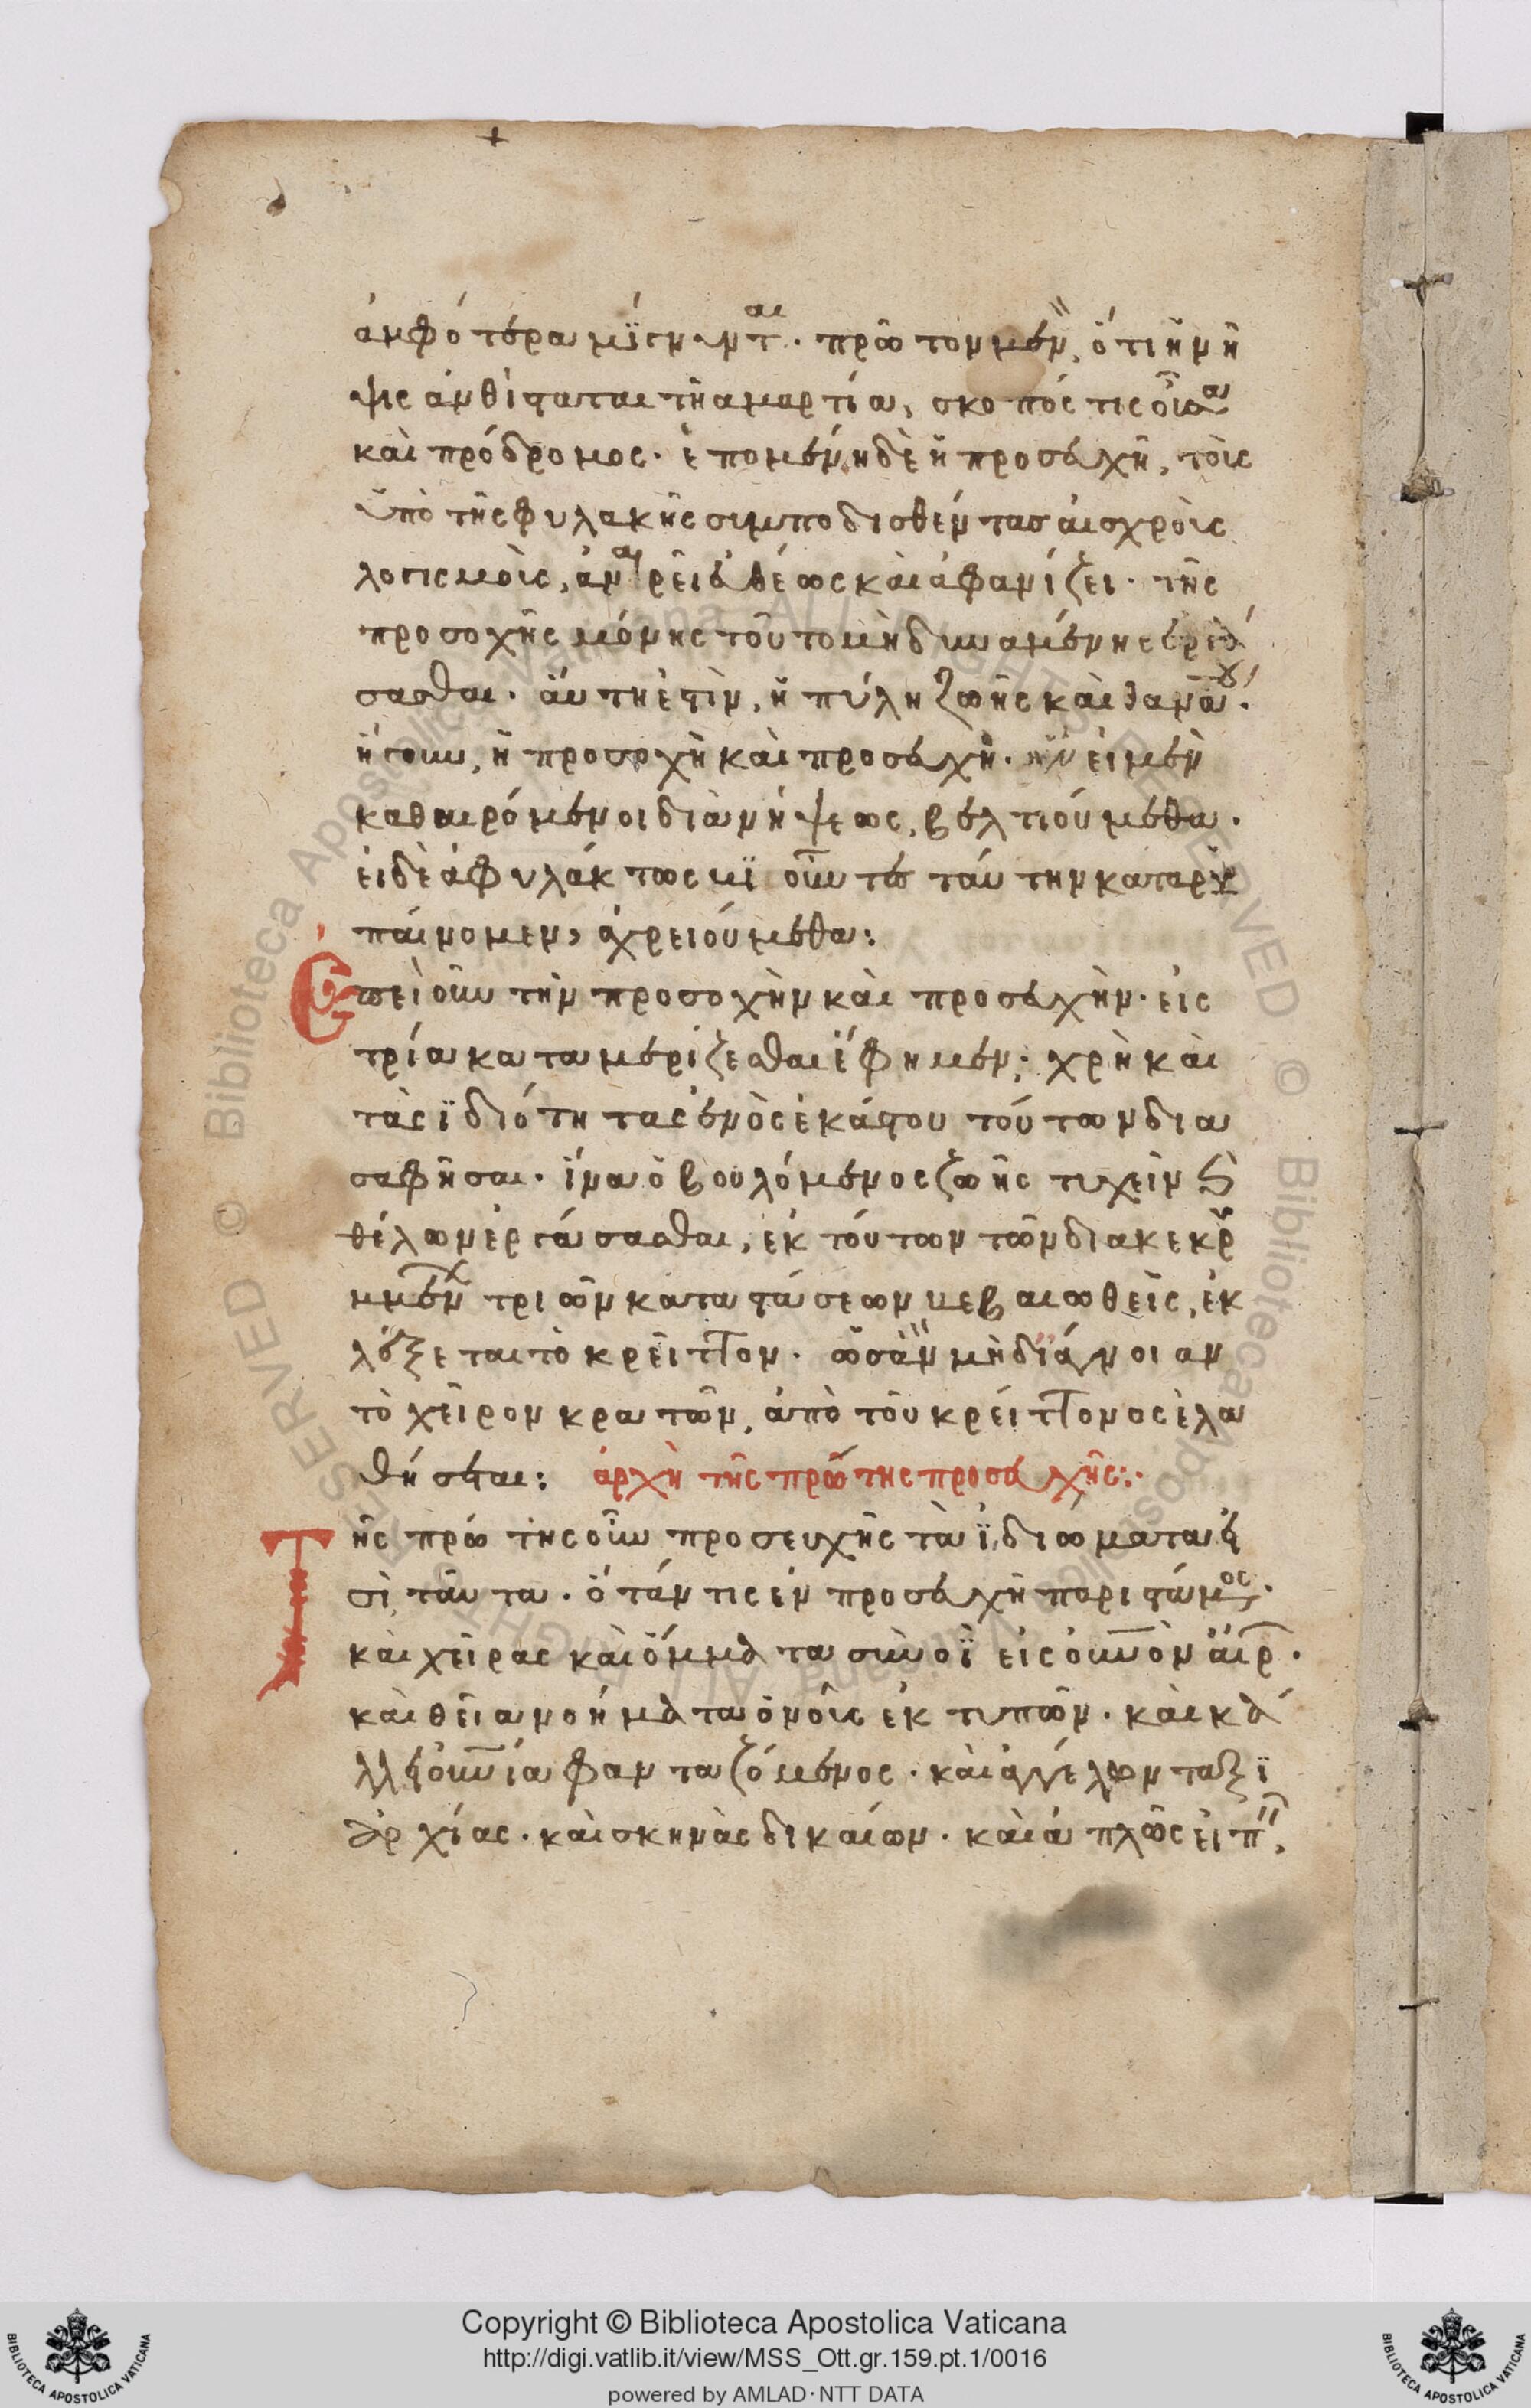 ἀμφότερα μίγνυνται. πρῶτον μὲν, ὅτι ἡ νῆ
ψις ἀνθίσταται τῇ ἁμαρτία, σκοπός τις οὖσα
καὶ πρόδρομος. ἑπομένη δὲ ἡ προσευχὴ, τοῖς
ὑπὸ τῆς φυλακῆς συμποδισθέντας αἰσχροῖς
λογισμοῖς, ἀναιρεῖ εὐθέως καὶ ἀφανίζει. τῆς
προσοχῆς μόνης τοῦτο μὴ δυναμένης ἐργά
σασθαι. αὕτη ἐστὶν, ἡ πύλη ζωῆς καὶ θανάτου.
ἤγουν, ἡ προσοχὴ καὶ προσευχή. ἣν εἰ μὲν
καθαιρόμενοι διὰ νήψεως, βελτιούμεθα.
εἰ δὲ ἀφυλάκτως μὶ οὖν τὸ ταύτην καταρυ
παίνομεν, ἀχρειούμεθα:
Ἐπεὶ οὖν τὴν προσοχὴν καὶ προσευχὴν. εἰς
τρία καταμερίζεσθαι ἔφημεν. χρὴ καὶ
τὰς ἰδιότητας ἑνὸς ἑκάστου τούτων δια
σαφῆσαι. ἵνα ὁ βουλόμενος ζωῆς τυχεῖν καὶ
θέλων ἐργάσασθαι, ἐκ τούτων τῶν διακεκρι
μμένων τριῶν καταστάσεων βεβαιωθεὶς, ἐκ
λέξεται τὸ κρεῖττον. ὡσὰν μὴ δι' ἄγνοιαν
τὸ χεῖρον κρατῶν, ἀπὸ τοῦ κρείττονος ἐλα
θήσεται: ἀρχὴ τῆς πρώτης προσευχῆς:.
Τῆς πρώτης οὖν προσευχῆς τὰ ἰδιώματα εἰ
σὶ ταῦτα. ὅτάν τις ἐν προσευχῆ παριστάμενος.
καὶ χεῖρας καὶ ὄμματα σὺν οἳ εἰς οὐνὸν αἴρ.
καὶ θεῖα νοήματα ὁ νοῦς ἐκτυπῶν. καὶ κά
λλη οὐνία φανταζόμενος. καὶ ἀγγέλων ταξι
αρχίας. καὶ σκηνὰς δικαίων. καὶ ἁπλῶς εἰπεῖν,
Copyright © Biblioteca Apostolica Vaticana
http://digi.vatlib.it/view/MSS_Ott.gr.159.pt.1/0016
powered by AMLAD·NTT DATA